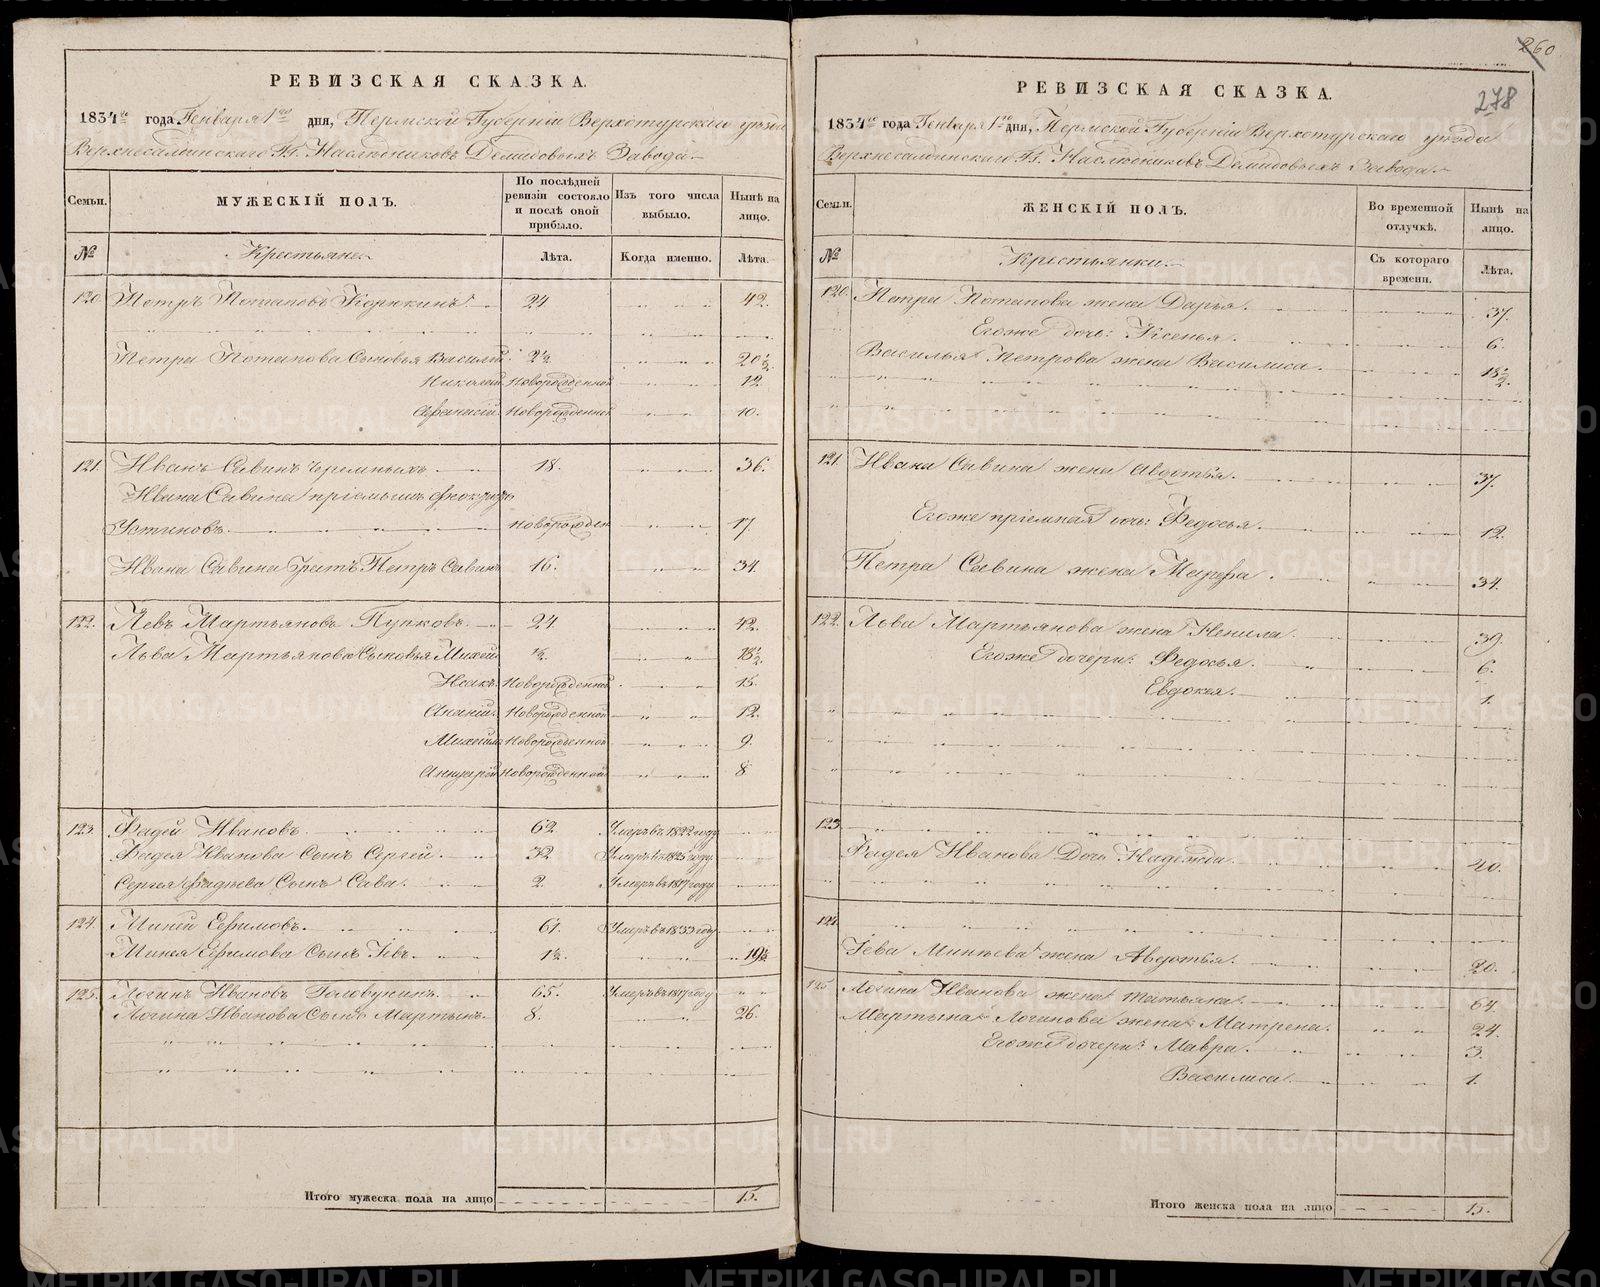 260
278
РЕВИЗСКАЯ СКАЗКА.
1834го года Генваря 1го дня, Пермской Губерніи Верхотурскаго уѣзда
Верхнесалдинскаго Гг. Наслѣдниковъ Демидовыхъ Завода
Семьи. МУЖЕСКІЙ ПОЛЪ. По послѣдней ревизіи состояло и послѣ оной прибыло. Изъ того числа выбыло. Нынѣ на лицо.
№ Крестьяне Лѣта. Когда именно. Лѣта.
120. Петръ Потаповъ Корюкинъ 24 42.
Петра Потапова Сыновья Василій 2½ 20½
Николай Новорожденной 12.
Афанасій Новорожденной 10.
121. Иванъ Савинъ 18. 36.
Ивана Савина пріемышъ
Устиновъ Новорожден 17.
Ивана Савина братъ Петръ Савинъ 16. 34.
122. Левъ Мартьяновъ Пупковъ. 24 42.
Льва Мартьянова Сыновья ½ 18½
Исакъ Новорожденной 15.
Ананій Новорожденной 12.
Михайла Новорожденной 9.
Новорожденной 8
123. Фадей Ивановъ 62. Умеръ въ 1822 году
Фадея Иванова Сынъ Сергей 32 Умеръ въ 1825 году
Сергея Фадѣева Сынъ Сава. 2. Умеръ въ 1817 году
124. Миней Ефимовъ. 61. Умеръ въ 1833 году
Минея Ефимова Сынъ Іевъ 1½. 19½
125. Логинъ Ивановъ Головунинъ. 65. Умеръ въ 1817 году
Логина Иванова Сынъ Мартынъ 8. 26.
Итого мужеска пола на лицо 15.
РЕВИЗСКАЯ СКАЗКА.
1834го года Генваря 1го дня, Пермской Губерніи Верхотурскаго уѣзда
Верхнесалдинскаго Гг. Наслѣдниковъ Демидовыхъ Завода
Семьи. ЖЕНСКІЙ ПОЛЪ. Во временной отлучкѣ. Нынѣ на лицо.
№ Крестьянки Съ котораго времени. Лѣта.
120. Петра Потапова жена Дарья. 37.
Егоже дочь: Ксенья. 6.
Василья Петрова жена Василиса. 18½
121. Ивана Савина жена Авдотья. 37.
Егоже пріемная дочь: Федосья. 12.
Петра Савина жена Марфа. 34.
122. Льва Мартьянова жена Ненила. 39.
Егоже дочери: Федосья. 6.
Евдокея. 1.
123
Фадея Иванова Дочь Надежда. 40.
124.
Іева Минѣева жена Авдотья. 20.
125. Логина Иванова жена Татьяна 64.
Мартына Логинова жена Матрена. 24.
Егоже дочери: Мавра. 3.
Василиса 1.
Итого женска пола на лицо 15.
METRIKI.GASO-URAL.RU